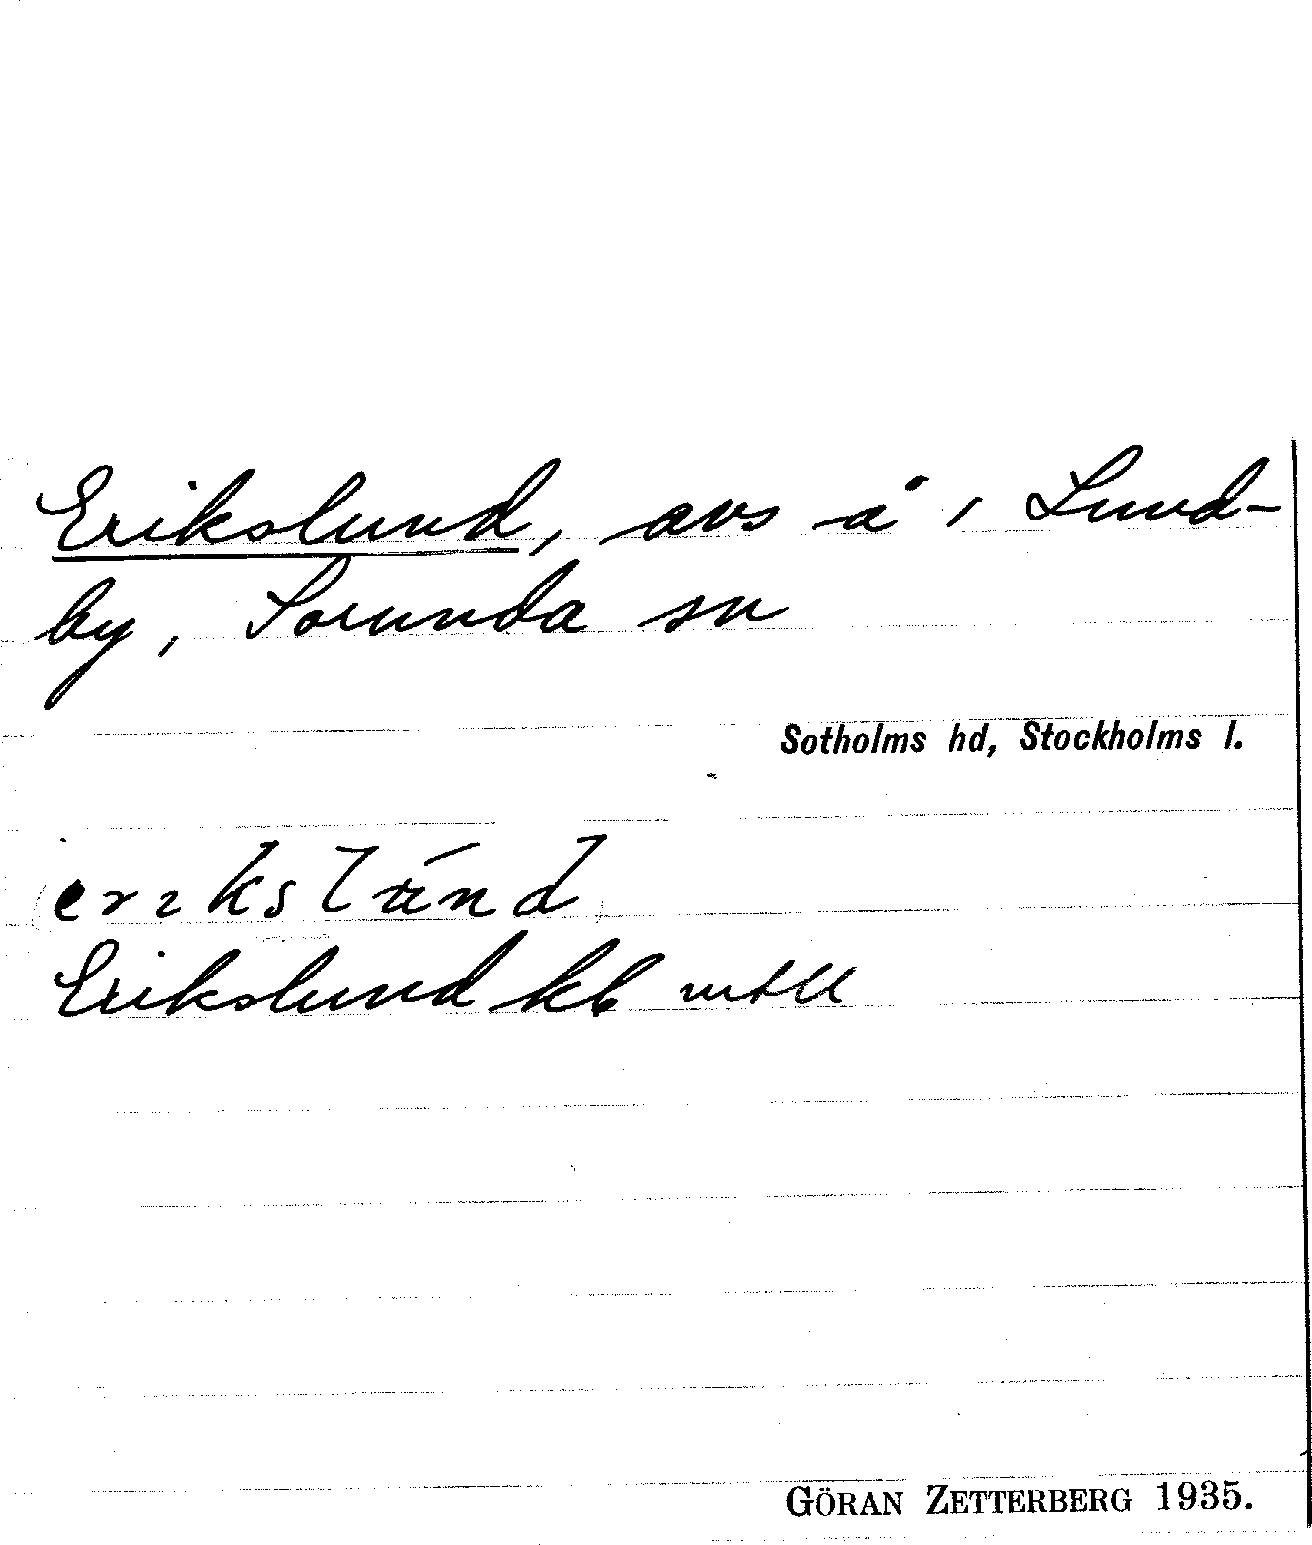 Erikslund, avs å i Lund-
by, Sorunda sn
Sotholms hd, Stockholms l.
Erikslund kb mtll
GÖRAN ZETTERBERG 1935.